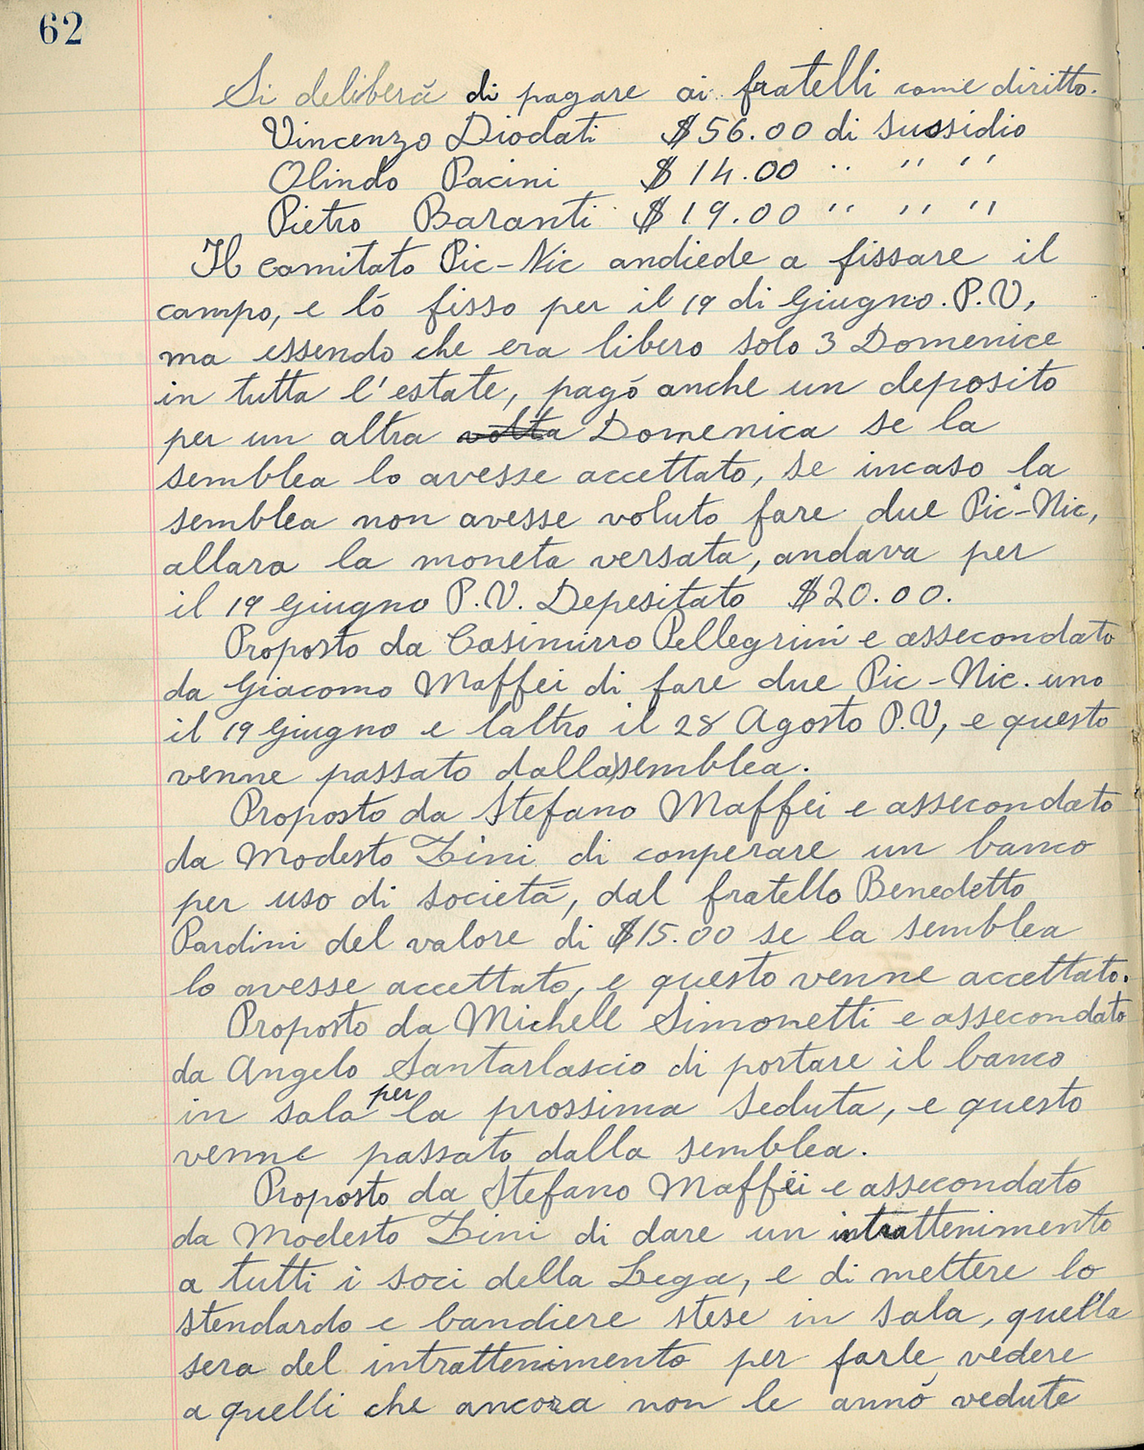 62
Si deliberà di pagare ai fratelli come diritto.
Vincenzo Diodati $56.00 di sussidio
Olindo Pacini $14.00 " " "
Pietro Baranti $19.00 " " "
Il camitato Pic-Nic andiede a fissare il
campo, e ló fisso per il 19 di Giugno. P.V,
ma essendo che era libero solo 3 Domenice
in tutta l'estate, pagó anche un deposito
per un altra volta Domenica se la
semblea lo avesse accettato, se incaso la
semblea non avesse voluto fare due Pic-Nic,
allara la moneta versata, andava per
il 19 Giugno P.V. Depesitato $20.00.
Proposto da Casimirro Pellegrini e assecondato
da Giacomo Maffei di fare due Pic-Nic. uno
il 19 Giugno e laltro il 28 Agosto P.V, e questo
venne passato dalla semblea.
Proposto da Stefano Maffei e assecondato
da Modesto Zini di conperare un banco
per uso di società, dal fratello Benedetto
Pardini del valore di $15.00 se la semblea
lo avesse accettato, e questo venne accettato.
Proposto da Michell Simonetti e assecondato
da Angelo Santarlascio di portare il banco
in sala per la prossima seduta, e questo
venne passato dalla semblea.
Proposto da Stefano Maffei e assecondato
da Modesto Zini di dare un intrattenimento
a tutti i soci della Lega, e di mettere lo
stendardo e bandiere stese in sala, quella
sera del intrattenimento per farle vedere
a quelli che ancora non le annó vedute